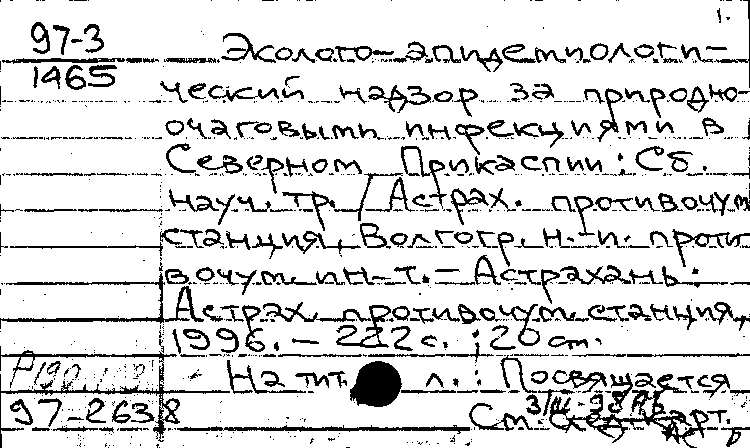 1.
97-3
1465
Эколого-эпидемиологи-
ческий надзор за природно-
очаговыми инфекциями в
Северном Прикаспии: Сб.
науч. тр. / Астрах. противочум
станция, Волгогр. н.-и. проти
вочум. ин-т. - Астрахань:
Астрах. противочум. станция,
1996. - 222 с.; 20 см.
На тит. л.: Посвящается
97-2638
См. след. карт.